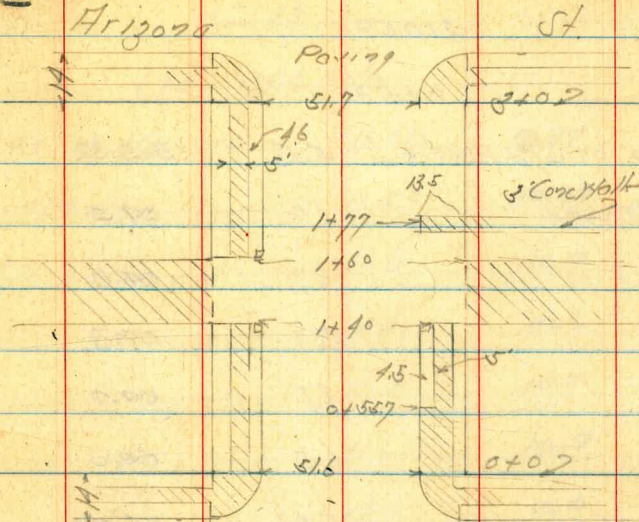 Arizona St.
Paving
14
51.7 3+02
4.6
5'
13.5
3' Conc Walk
1+77
1+60
1+40
4.5 5'
0+55.7
51.6 0+02
14